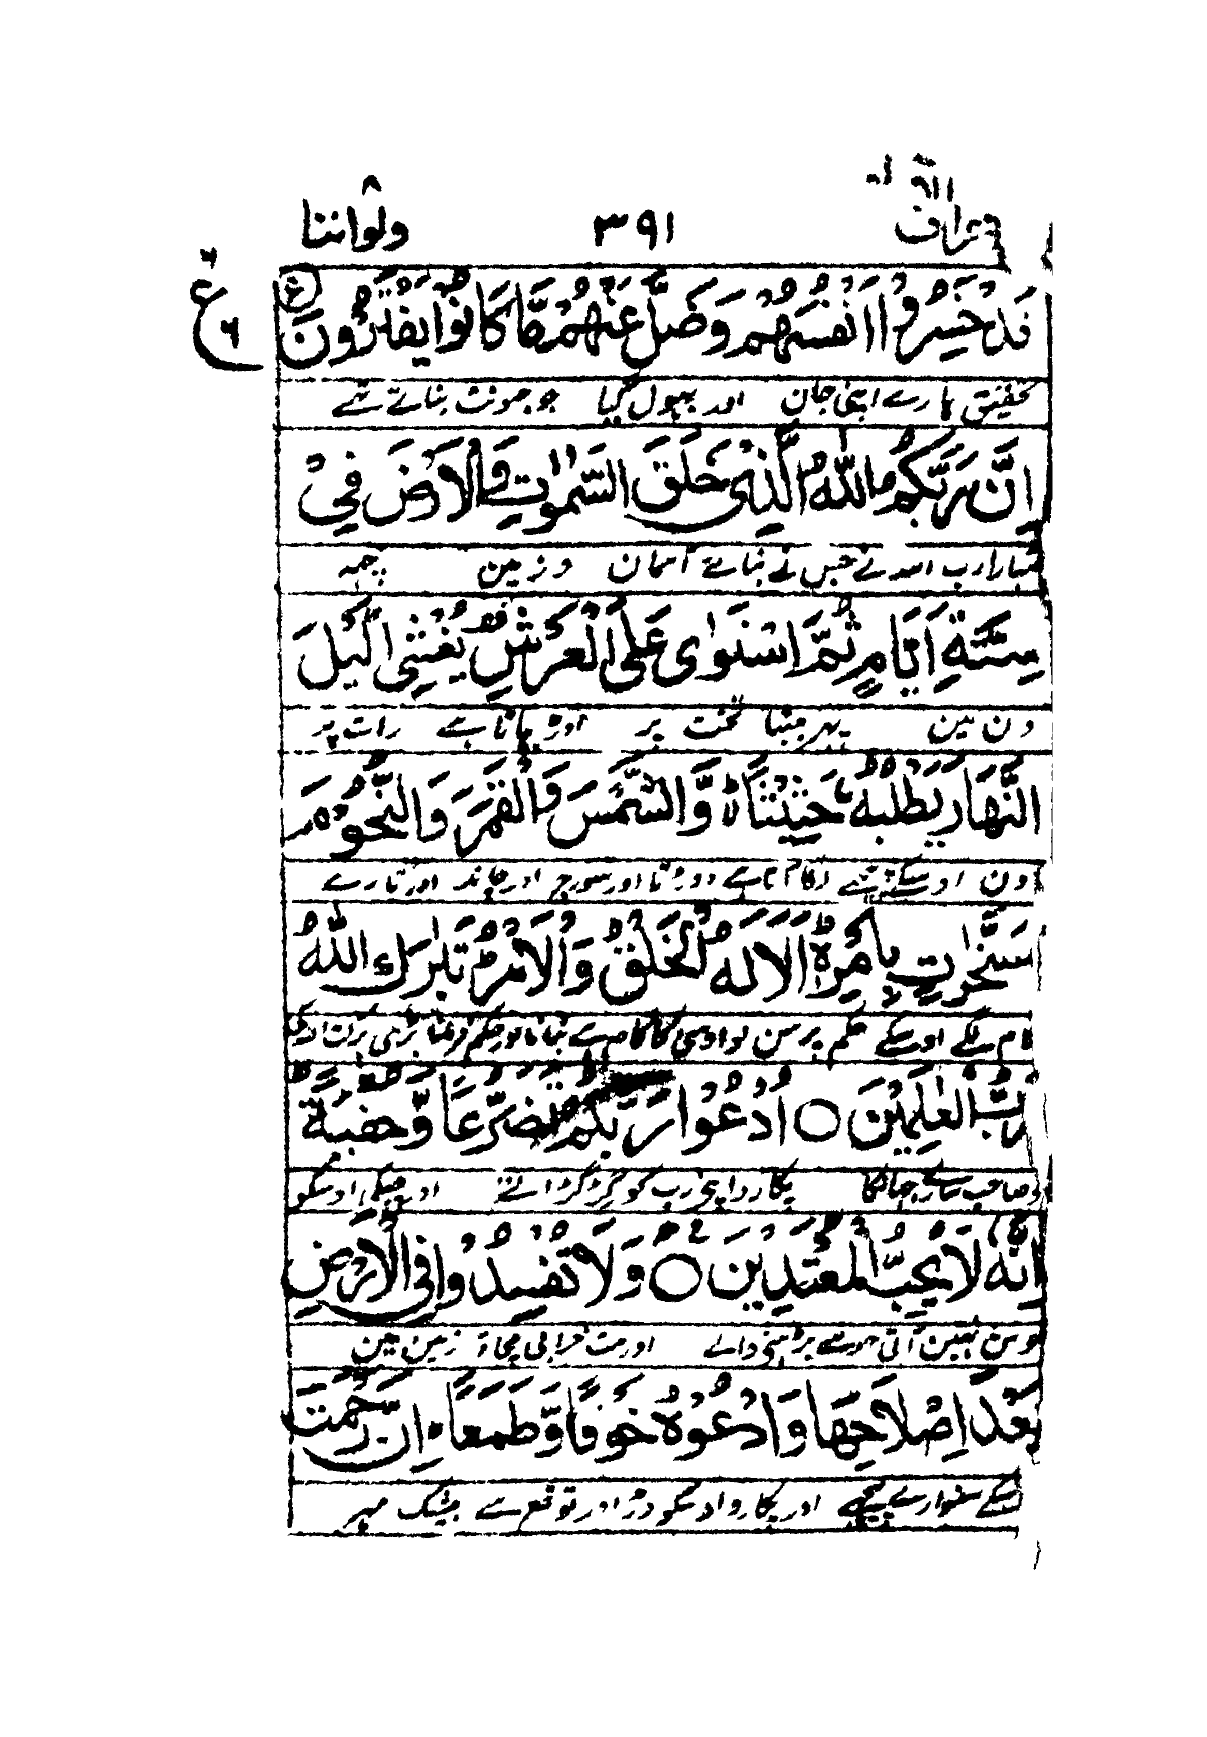 الاعراف ٣٩١ ولواننا ٨
قَدْ خَسِرُوْٓا اَنْفُسَهُمْ وَضَلَّ عَنْهُمْ مَّا كَانُوْا يَفْتَرُوْنَ
ع ٦
تحقیق ہارے اپنی جان اور بھول گیا جو جھوٹھ بناتے تھے
اِنَّ رَبَّكُمُ اللّٰهُ الَّذِیْ خَلَقَ السَّمٰوٰتِ وَالْاَرْضَ فِیْ
تمہارا رب اللہ نے جس نے بنائے آسمان و زمین چھہ
سِتَّةِ اَیَّامٍ ثُمَّ اسْتَوٰی عَلَی الْعَرْشِ یُغْشِی الَّیْلَ
دن مین پہر بیٹھا تخت پر اوڑہاتا ہے رات پر
النَّهَارَ یَطْلُبُهٗ حَثِیْثًا وَّالشَّمْسَ وَالْقَمَرَ وَالنُّجُوْمَ
دن اوسکے پیچھے لگا آتا ہے دوڑتا اور سورج اور چاند اور تارے
مُسَخَّرٰتٍۭ بِاَمْرِهٖ اَلَا لَهُ الْخَلْقُ وَالْاَمْرُ تَبٰرَكَ اللّٰهُ
کام لگے اوسکے حکم پر سن لو اوسی کا کام ہے بنانا اور حکم فرمانا بڑی برکت اللہ کی
رَبُّ الْعٰلَمِیْنَ ○ اُدْعُوْا رَبَّكُمْ تَضَرُّعًا وَّخُفْیَةً
صاحب سارے جہان کا پکارو اپنے رب کو گڑگڑاتے اور چپکے اوسکو
اِنَّهٗ لَا یُحِبُّ الْمُعْتَدِیْنَ ○ وَلَا تُفْسِدُوْا فِی الْاَرْضِ
خوش نہین آتی حد سے بڑہنے والے اور مت خرابی مچاؤ زمین مین
بَعْدَ اِصْلَاحِهَا وَادْعُوْهُ خَوْفًا وَّطَمَعًا اِنَّ رَحْمَتَ
اسکے سنوارے پیچھے اور پکارو اوسکو ڈر اور توقع سے بیشک مہر